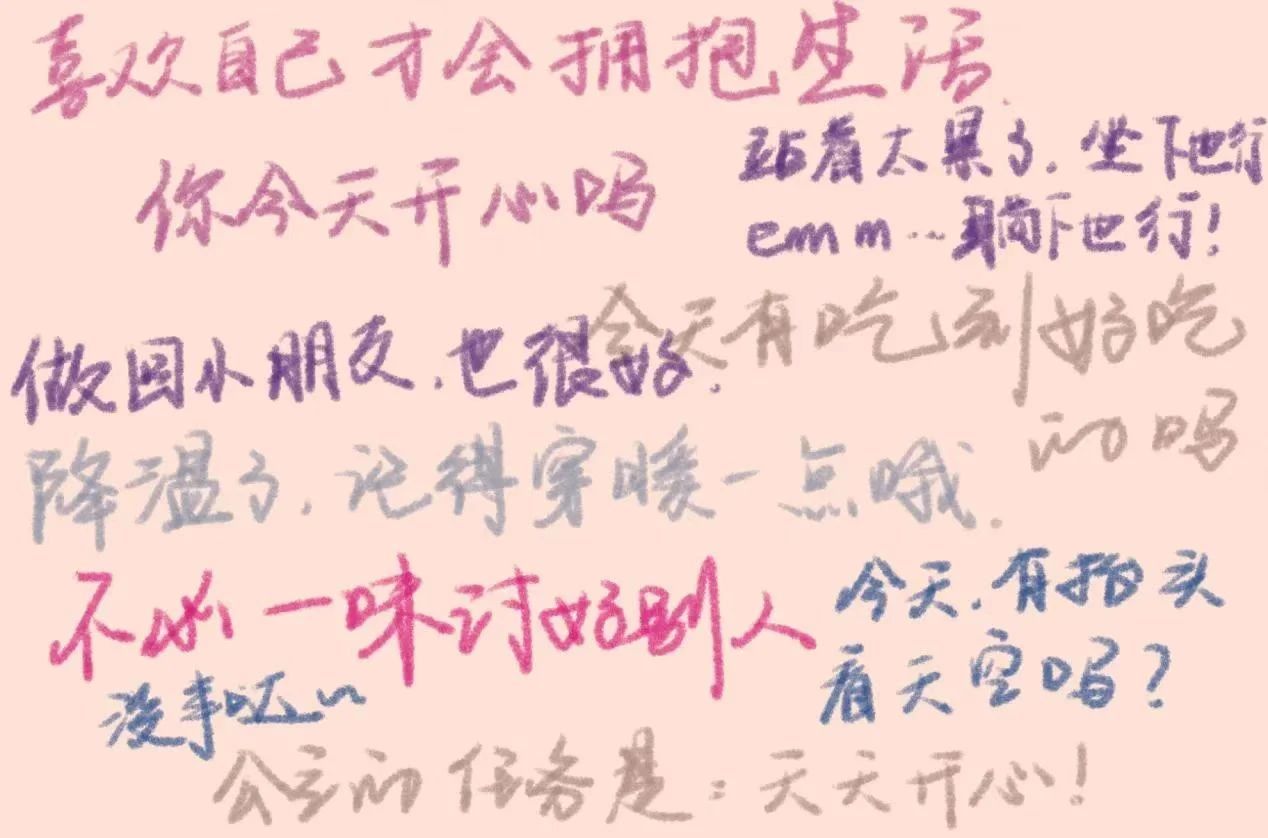 喜欢自己才会拥抱生活.
你今天开心吗
站着太累了.坐下也行
emm…躺下也行!
今天有吃到好吃
的吗
做回小朋友.也很好.
降温了.记得穿暖一点哦.
不必一味讨好别人
今天.有抬头
看天空吗?
没事哒~
公主的任务是:天天开心!